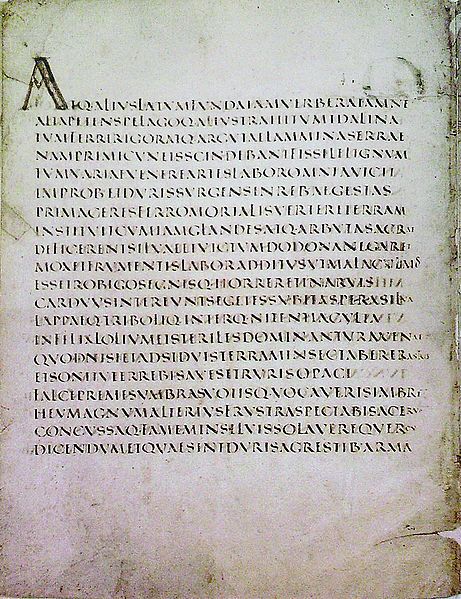 ATQ·ALIUSLATUMFUNDAIAMVERBERATAMNE
ALTAPETENSPELAGOQ·ALIUSTRAHITUMIDALINA
TUMFERRIRIGORATQ·ARGUTAELAMMINASERRAE
NAMPRIMICUNEISSCINDEBANTFISSILELIGNUM
TUMVARIAEVENEREARTESLABOROMNIAVICIT
IMPROBETDURISURGENSINREBUSEGESTAS
PRIMACERESFERROMORTALISVERTERETERRAM
INSTITUITCUMIAMGLANDESATQ·ARBUTASACRAE
DEFICERENTSILVAEETVICTUMDODONANEGARET
MOXETFRUMENTISLABORADDITUSUTMALACULMOS
ESSETROBIGOSEGNISQ·HORRERETINARVIS
CARDUUSINTEREUNTSEGETESSUBITASPERASILVA
LAPPAEQ·TRIBOLIQ·INTERQ·NITENTIACULTA
INFELIXLOLIUMETSTERILESDOMINANTURAVENAE
QUODNISIETADSIDUISTERRAMINSECTABERERASTRIS
ETSONITUTERREBISAVESETRURISOPACI
FALCEPREMESUMBRASVOTISQ·VOCAVERISIMBRE
HEUMAGNUMALTERIUSFRUSTRASPECTABISACERVU
CONCUSSAQ·FAMEMINSILVISSOLAVEREQUERCU
DICENDUMETQUAESINTDURISAGRESTIBARMA